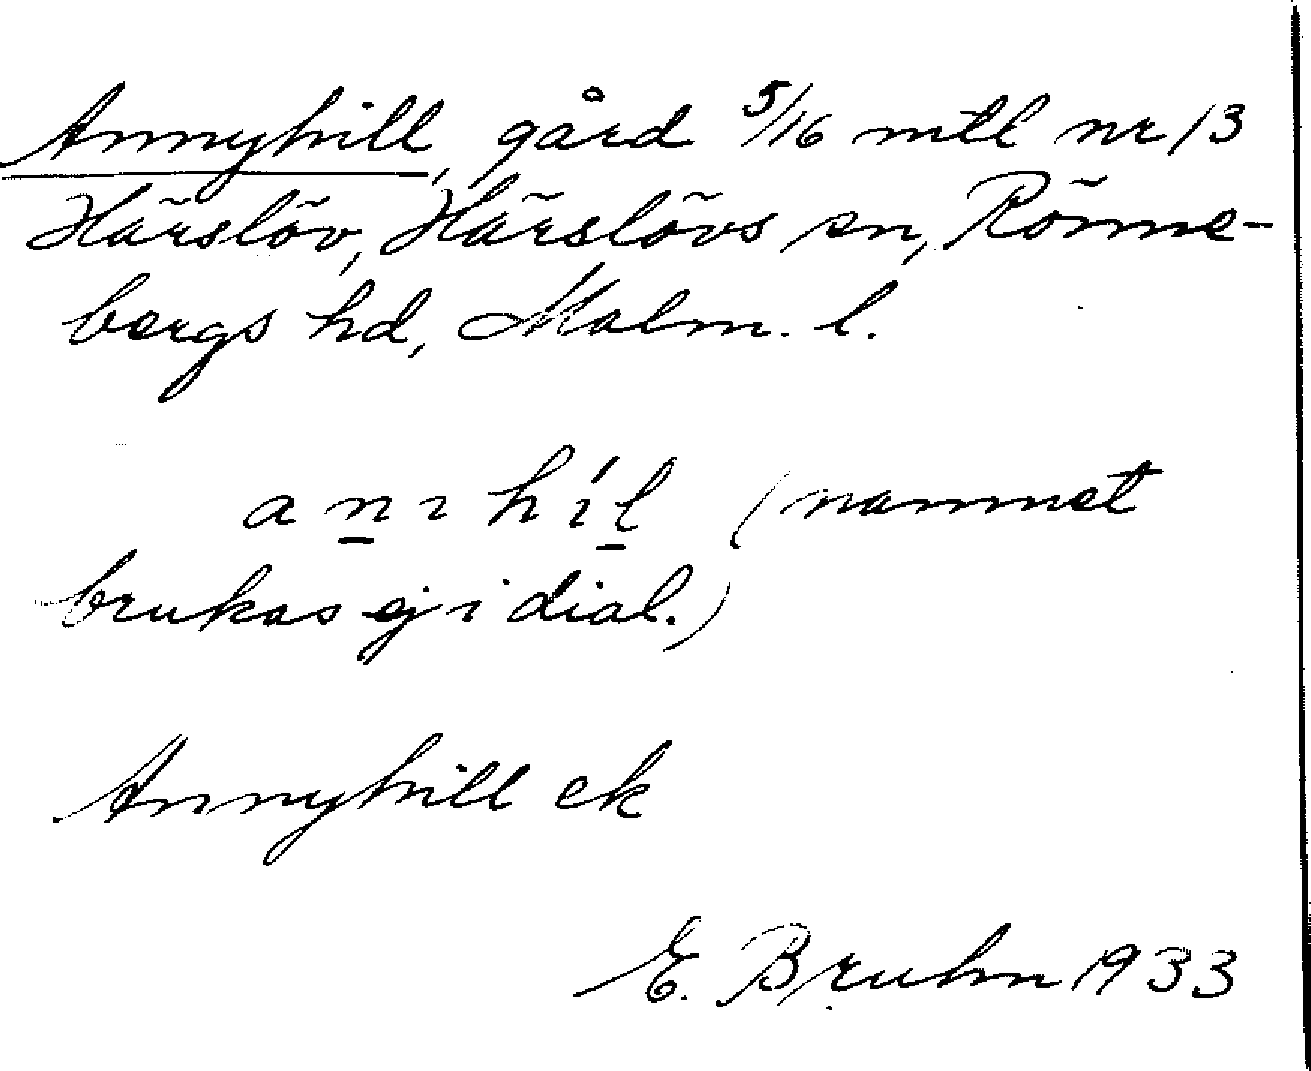 Annyhill, gård 5/16 mtl nr 13
Härslöv, Härslövs sn, Rönne-
bergs hd, Malm. l.
a n ı h í l (namnet
brukas ej i dial.)
Annyhill ek
E. Bruhn 1933